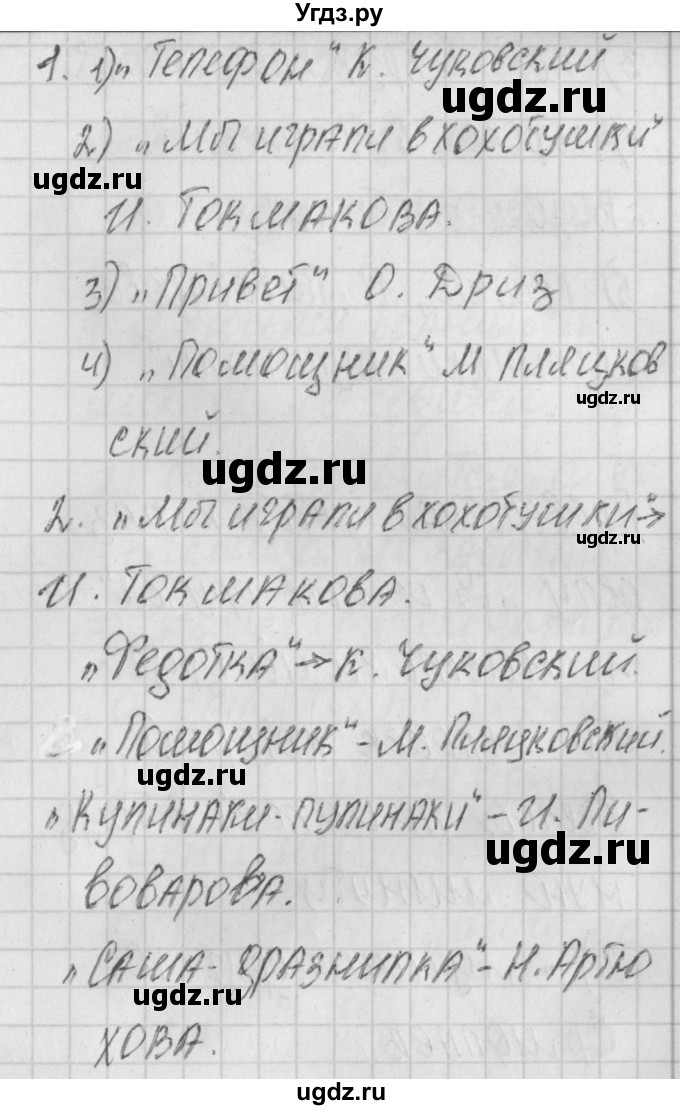 Угдз.ру
1. 1) „Телефон“ К. Чуковский
ugdz.ru
2) „Мы играли в хохотушки“
ugdz.ru
И. Токмакова.
3) „Привет“ О. Дриз
4) „Помощник“ М Пляцков
ugdz.ru
ский.
ugdz.ru
2. „Мы играли в хохотушки“→
ugdz.ru
И. Токмакова.
„Федотка“→ К. Чуковский.
„Помощник“ - М. Пляцковский.
ugdz.ru
„Кулинаки-пулинаки“ - И. Пи-
ugdz.ru
воварова.
„Саша-дразнилка“ - Н. Артю
ugdz.ru
хова.
ugdz.ru